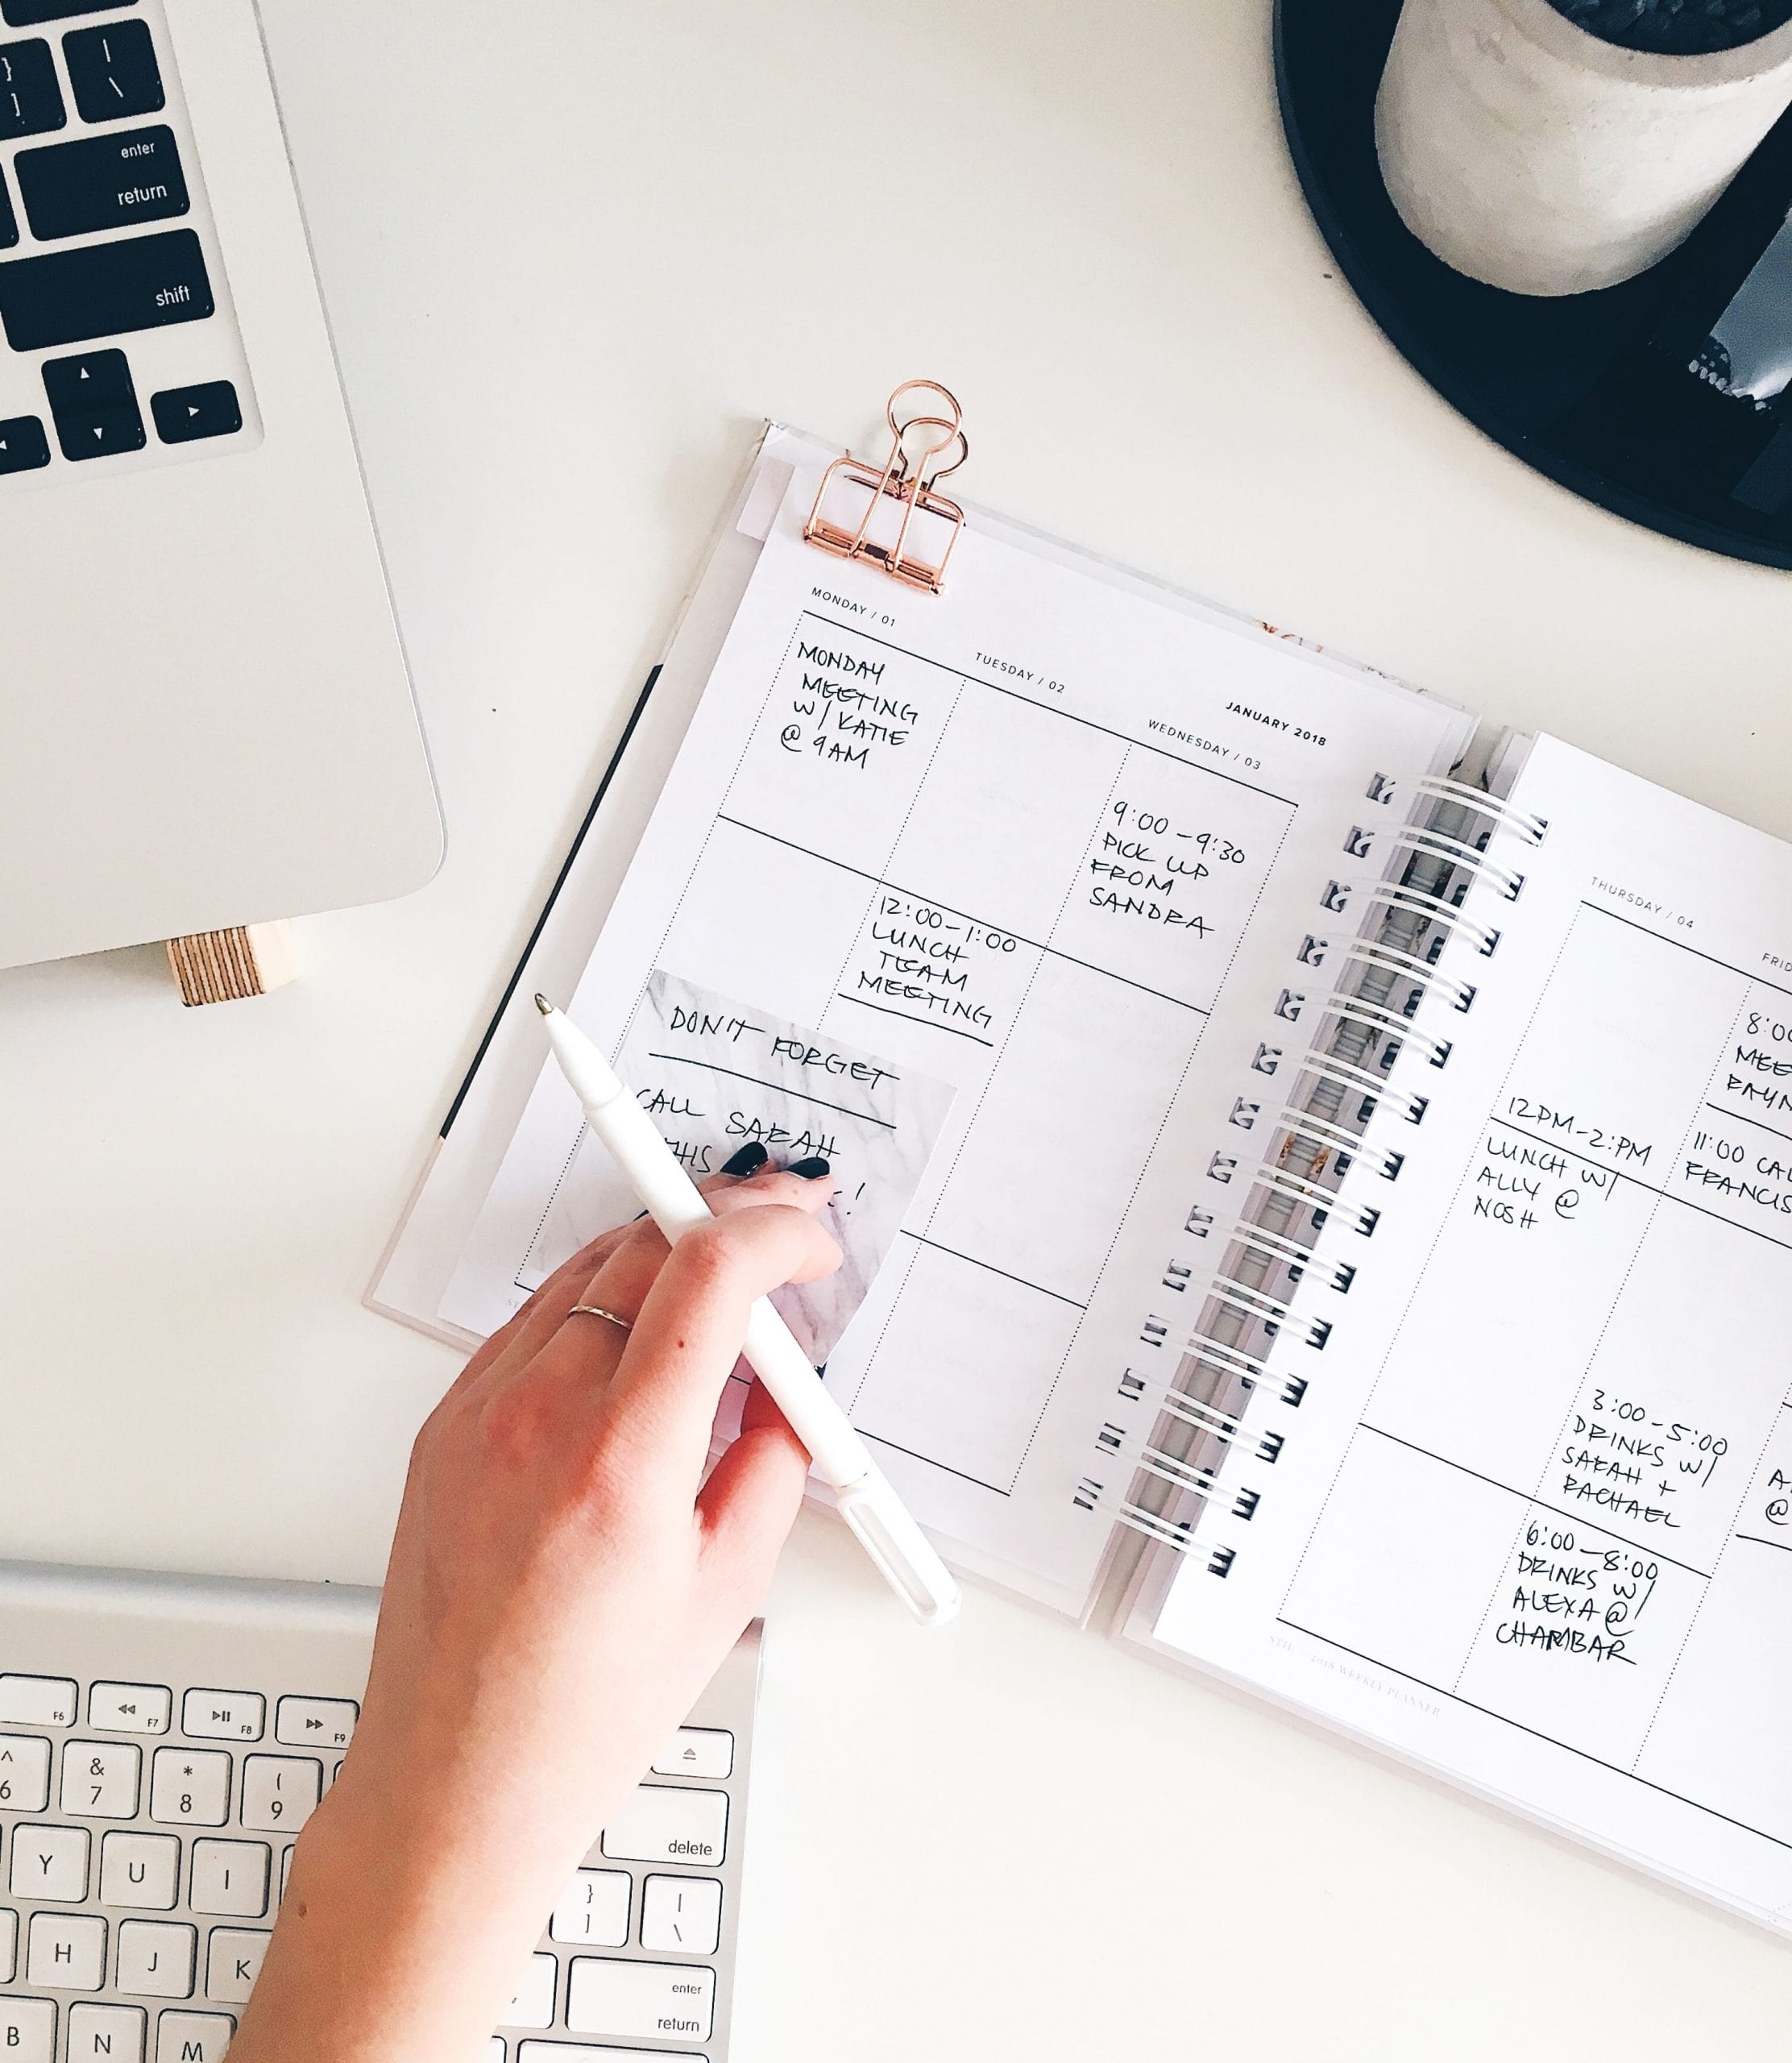 }
]
|
\
enter
return
shift
MONDAY / 01
MONDAY
MEETING
W/ KATIE
@ 9AM
TUESDAY / 02
12:00-1:00
LUNCH
TEAM
MEETING
JANUARY 2018
WEDNESDAY / 03
9:00-9:30
PICK UP
FROM
SANDRA
DON'T FORGET
CALL SARAH
THURSDAY / 04
12PM-2:PM
LUNCH W/
ALLY @
NOSH
8:00
11:00
FRANCIS
3:00-5:00
DRINKS W/
SARAH +
RACHAEL
6:00-8:00
DRINKS W/
ALEXA @
CHAMBAR
@
2018 WEEKLY PLANNER
F6
F7
F8
F9
^
6
&
7
*
8
(
9
delete
Y
U
I
}
]
|
\
H
J
K
enter
return
B
N
M